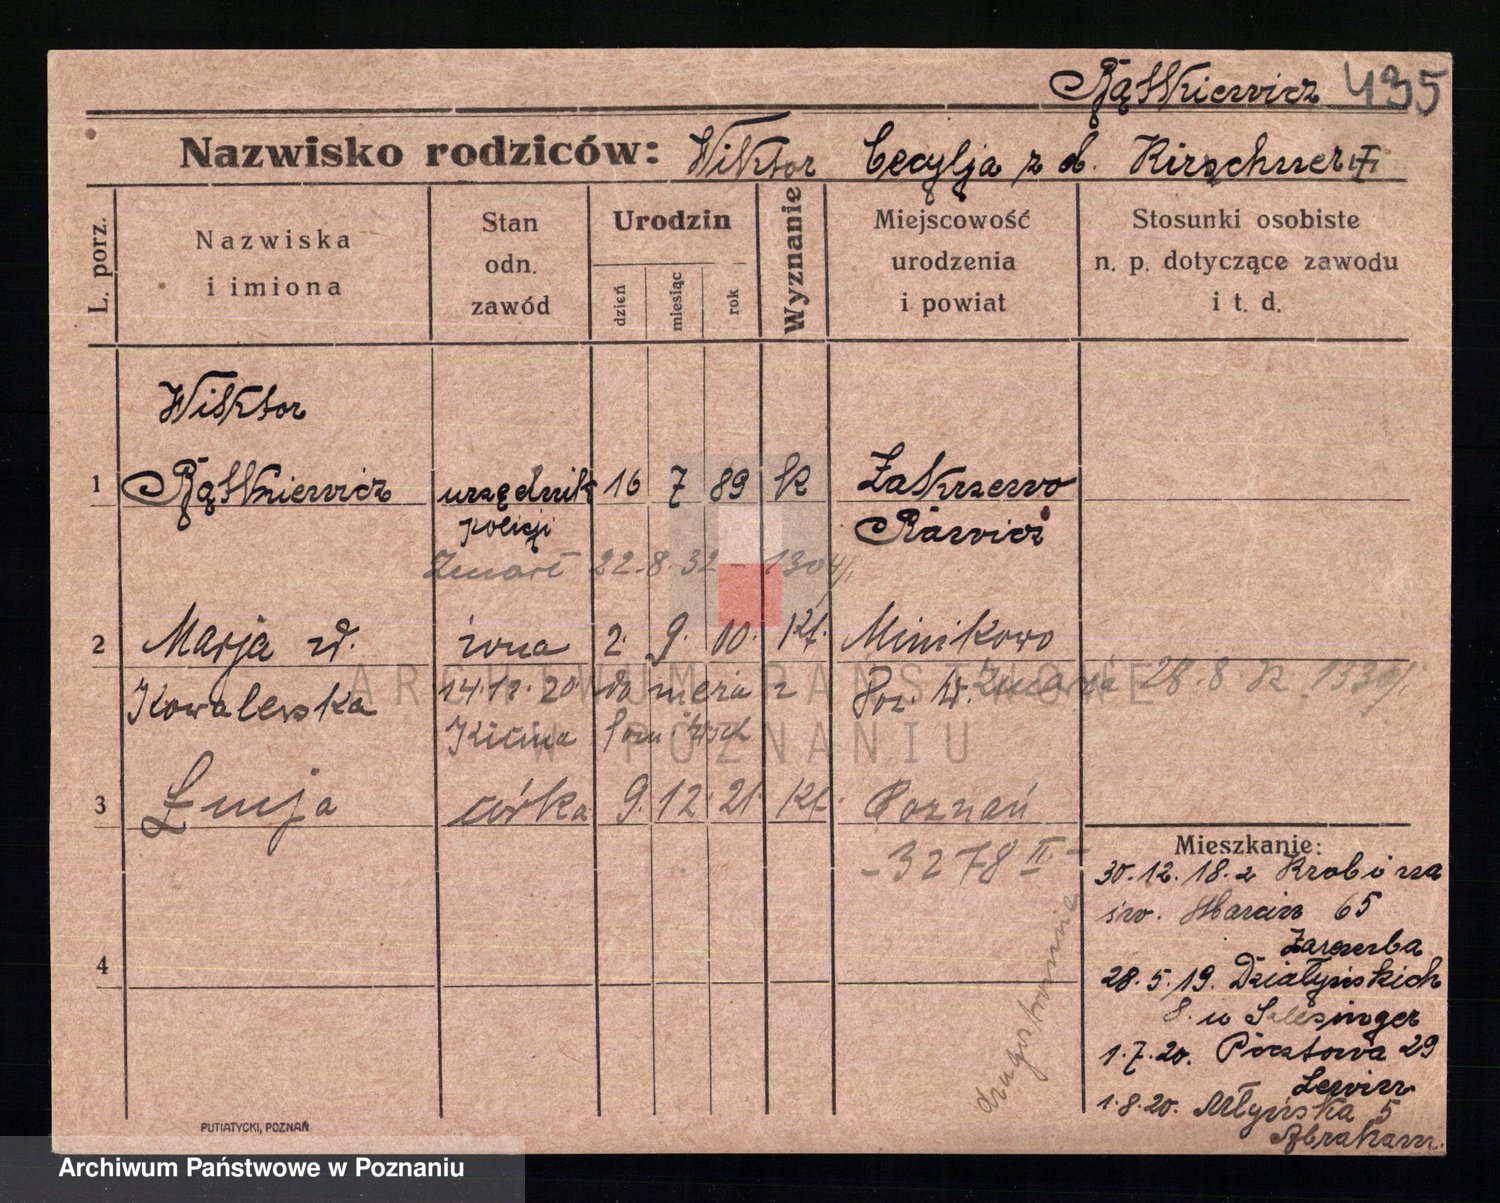 Rątkiewicz 435
Nazwisko rodziców: Wiktor Cecylja z d. Kirschner
L. porz.
Nazwiska
i imiona
Stan
odn.
zawód
Urodzin
dzień
miesiąc
rok
Wyznanie
Miejscowość
urodzenia
i powiat
Stosunki osobiste
n. p. dotyczące zawodu
i t. d.
Wiktor
1 Rątkiewicz urzędnik 16 7 89 k Zakrzewo
policji Rawicz
Zmarł 22.8.32 – 1304/
2 Marja zd. żona 2. 9. 10. Kt. Minikowo
Kowalewska 14.12.20 Poz. W. Zmarła 28.8. 1330/
3 córka 9. 12. 21. Kt. Poznań
– 3278 II –
4
Mieszkanie:
30.12.18. z Krobi na
św. Marcin 65
Zaremba
28.5.19. Działyńskich
8. u
1.7.20. Pocztowa 29
Lewin
1.8.20. Młyńska 5
Abraham.
drugostronnie
PUTIATYCKI, POZNAŃ
ARCHIWUM PAŃSTWOWE
W POZNANIU
Archiwum Państwowe w Poznaniu